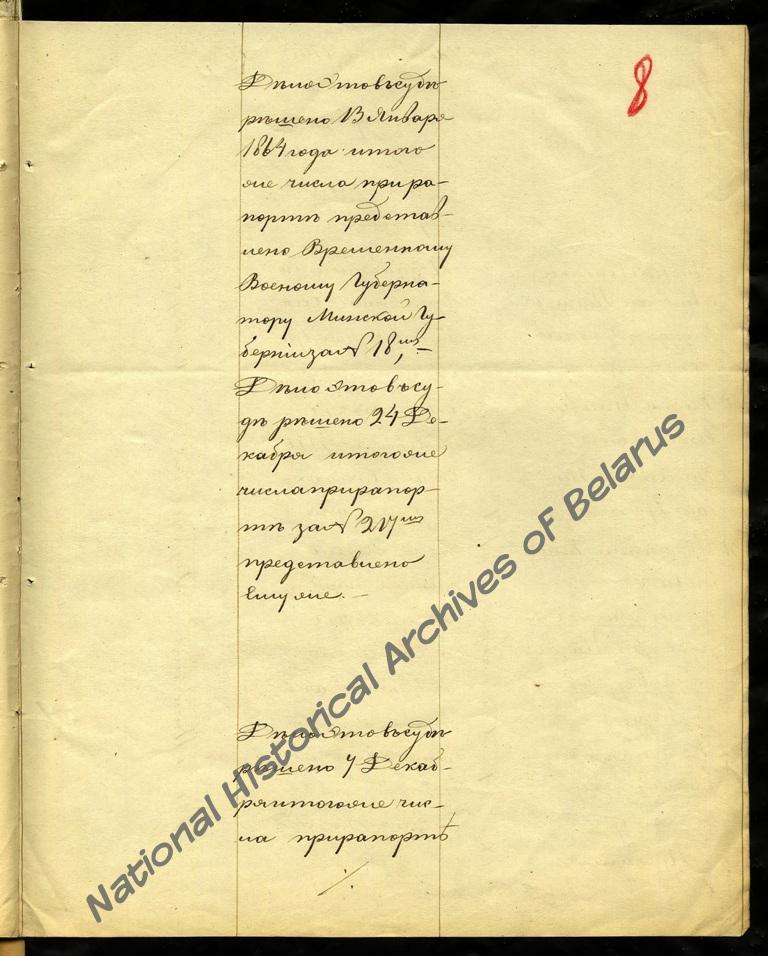 8
Дѣло это въ судѣ
рѣшено 13 Января
1864 года и того
же числа при ра-
портѣ представ-
лено Временному
Военому Губерна-
тору Минской Гу-
берніи за № 18,
Дѣло это въ су-
дѣ рѣшено 24 Де-
кабря и того же
числа при рапор-
тѣ за № 217
представлено
ему же. —
Дѣло это въ судѣ
рѣшено 7 Декаб-
ря и того же чис-
ла при рапортѣ
National Historical Archives of Belarus